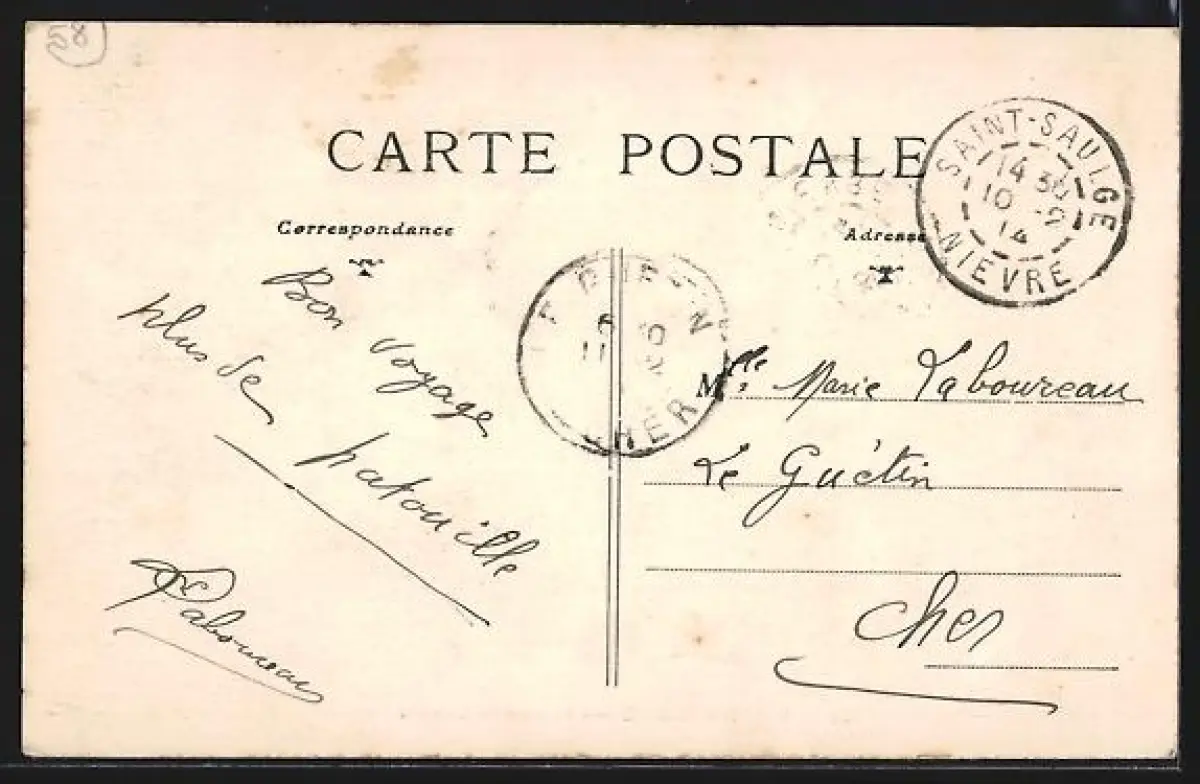 58
CARTE POSTALE
Correspondance
Adresse
SAINT-SAULGE
14 30
10 -2
14
NIEVRE
CHER
Bon voyage
plus de patouille
Laboureau
Mlle Marie Laboureau
Le Guétin
Cher